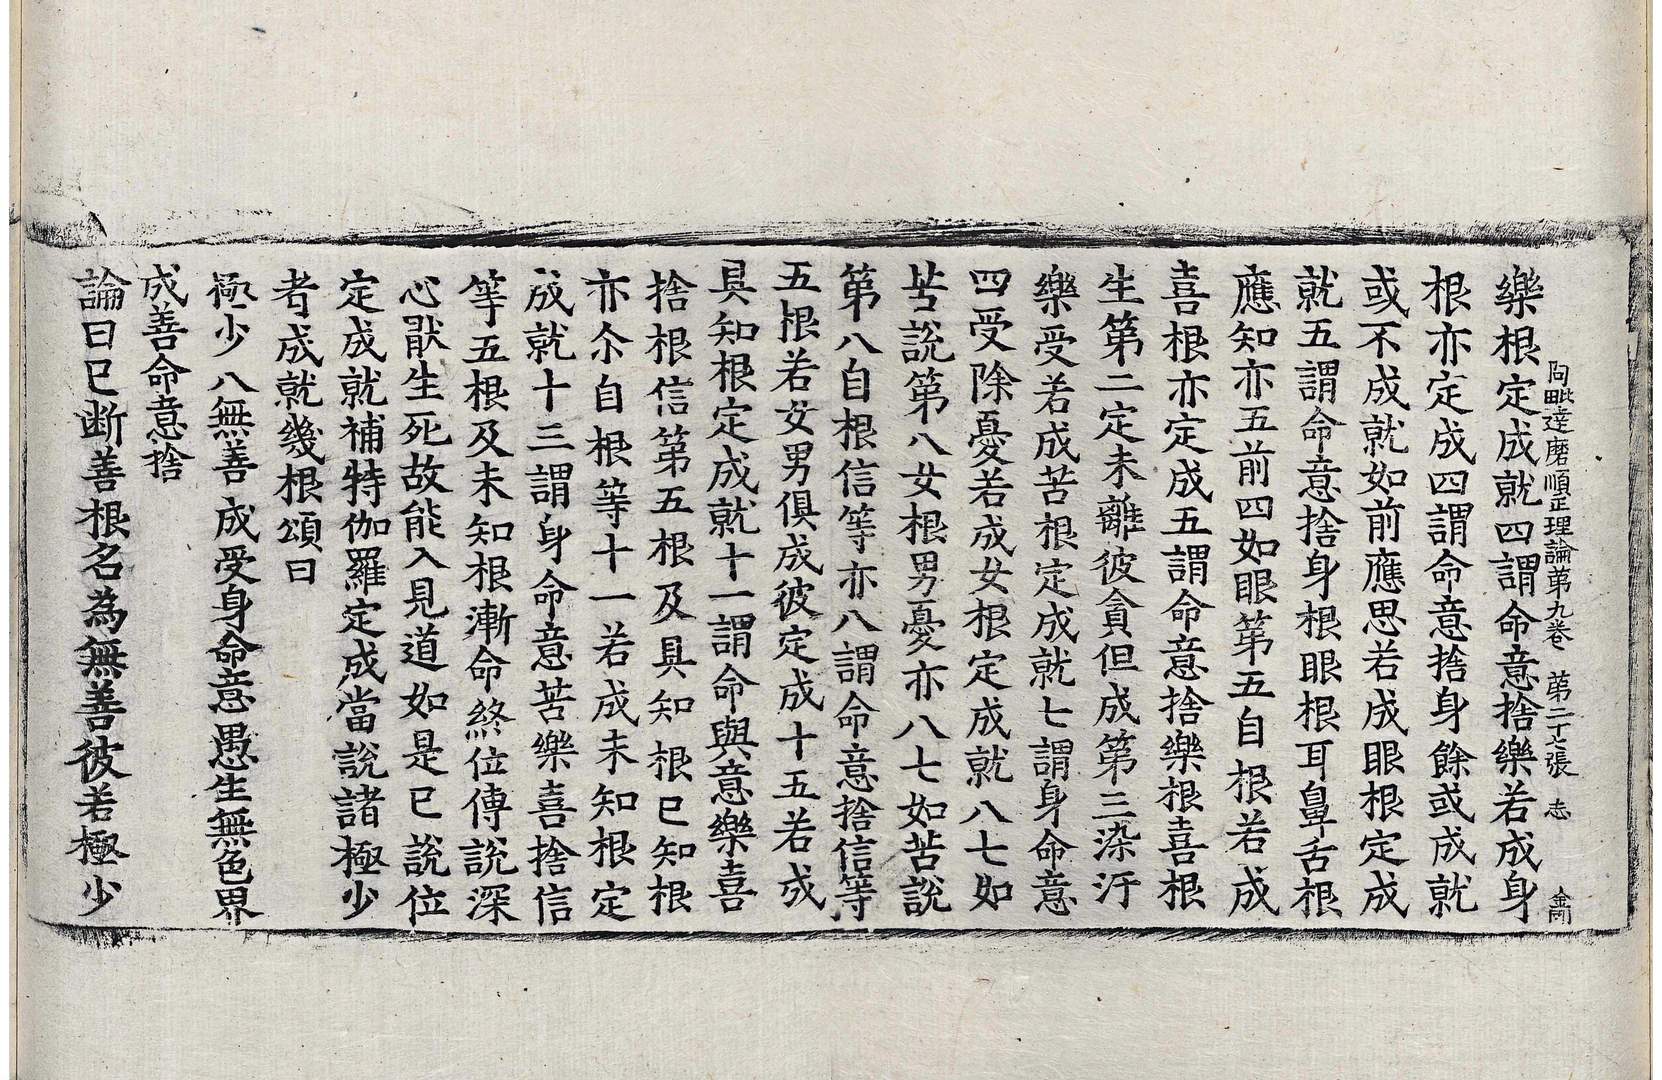 阿毗達磨順正理論第九卷　第二十七張　志　金同
樂根定成就四謂命意捨樂若成身
根亦定成四謂命意捨身餘或成就
或不成就如前應思若成眼根定成
就五謂命意捨身根眼根耳鼻舌根
應知亦五前四如眼第五自根若成
喜根亦定成五謂命意捨樂根喜根
生第二定未離彼貪但成第三染汙
樂受若成苦根定成就七謂身命意
四受除憂若成女根定成就八七如
苦說第八女根男憂亦八七如苦說
第八自根信等亦八謂命意捨信等
五根若女男俱成彼定成十五若成
具知根定成就十一謂命與意樂喜
捨根信第五根及具知根已知根
亦尒自根等十一若成未知根定
成就十三謂身命意苦樂喜捨信
等五根及未知根漸命終位傳說深
心猒生死故能入見道如是已說位
定成就補特伽羅定成當說諸極少
者成就幾根頌曰
極少八無善　成受身命意愚生無色界
成善命意捨
論曰已斷善根名為無善彼若極少